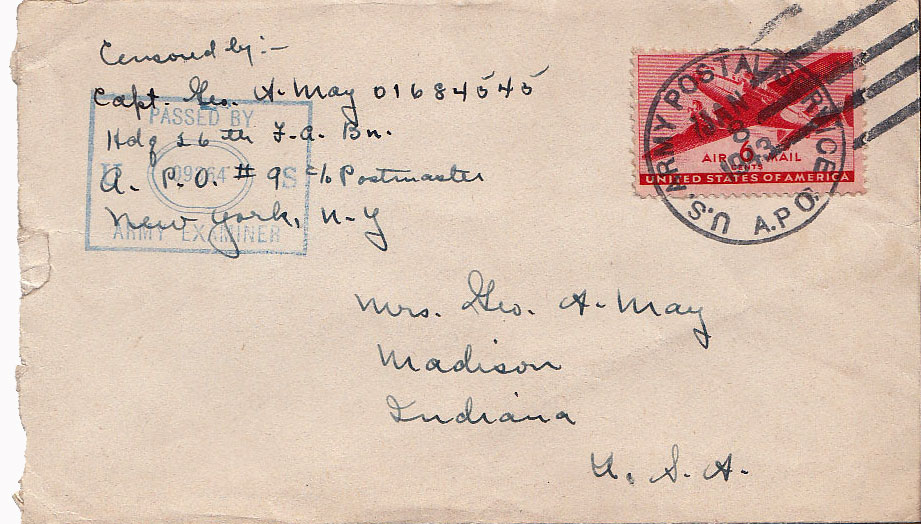 Censored by:-
Capt. Geo. A. May 01684545
Hdq 26th F.A. Bn.
A. P.O. # 9 c/o Postmaster
New York, N-Y
PASSED BY
U S
ARMY EXAMINER
U.S. ARMY POSTAL SERVICE
A.P.O.
JAN
8
1943
6
CENTS
AIR MAIL
UNITED STATES OF AMERICA
Mrs. Geo. A. May
Madison
Indiana
U. S. A.